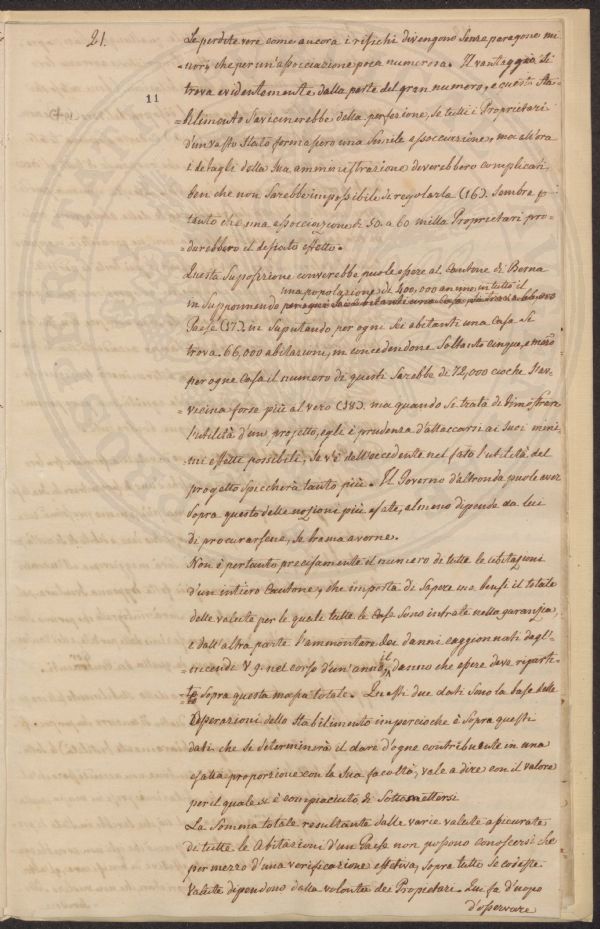 21.
11
Le perdite vere come ancora i rischi divengono senza paragone mi
=nori, che per un'associazione poca numerosa. Il vantaggio si
trova evidentemente dalla parte del gran numero, e questo sta=
=bilimento s'avicinerebbe della perfezione, se tutti i Proprietari
d'un vasto Stato formassero una simile associazione, ma allora
i detagli della sua amministrazione doverebbero complicarsi
ben che non sarebbe impossibile di regolarla (16). Sembra per
tanto che una associazione di 50. a 60 milla Proprietari pro=
=durebbero il desiato effetto.
Questa suposizione converebbe puole essere al Cantone di Berna
una popolazione di 400,000 anime in tutto il
in supponendo per ogni sei abitanti una Casa
Paese (17). in suputando per ogni sei abitanti una Casa si
trova 66,000 abitazioni, in concedendone soltanto cinque e mezzo
per ogne Casa il numero di questi sarebbe di 72,000 cioche s'av=
=vicina forse più al vero (18). ma quando si trata di dimostrare
l'utilità d'un progetto, egli è prudenza d'attaccarsi ai suoi mini=
=mi effetti possibili, se v'è dell'eccedente nel fato l'utilità del
progetto spiccherà tanto più. Il Governo d'altronda puole aver
sopra questo delle nozioni più esate, almeno dipende da lui
di procurarsene, se brama averne.
Non è pertanto precisamente il numero di tutte le abitazioni
d'un intiero Cantone, che importa di sapere ma bensì il totale
delle valute per le quale tutte le Case sono intrate nella garanzia,
e dall'altra parte l'ammontare dei danni caggionati dagl'in=
=cendi V.g. nel corso d'un'anno, il danno che essere deve riparti=
=to sopra questa massa totale. Questi due dati sono la base delle
Operazioni dello Stabilimento impercioche è sopra questi
dati che si determinerà il dare d'ogne contribuente in una
esatta proporzione con la sua facoltà, vale a dire con il valore
per il quale si è compiaciuto di sottomettersi
La somma totale resultante dalle varie valute assicurate
di tutte le Abitazioni d'un Paese non possono conoscersi che
per mezzo d'una verificazione effettiva, sopra tutto se codeste
valute dipendono dalla volontà dei Propietari. Qui fa d'uopo
d'osservare